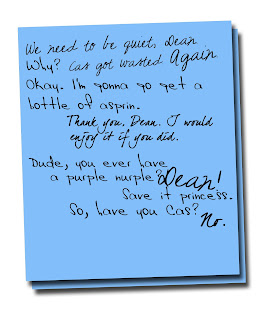 We need to be quiet, Dean.
Why? Cas got wasted Again
Okay. I'm gonna go get a
bottle of asprin.
Thank you. Dean. I would
enjoy it if you did.
Dude, you ever have
a purple nurple? Dean!
Save it princess.
So, have you Cas?
No.